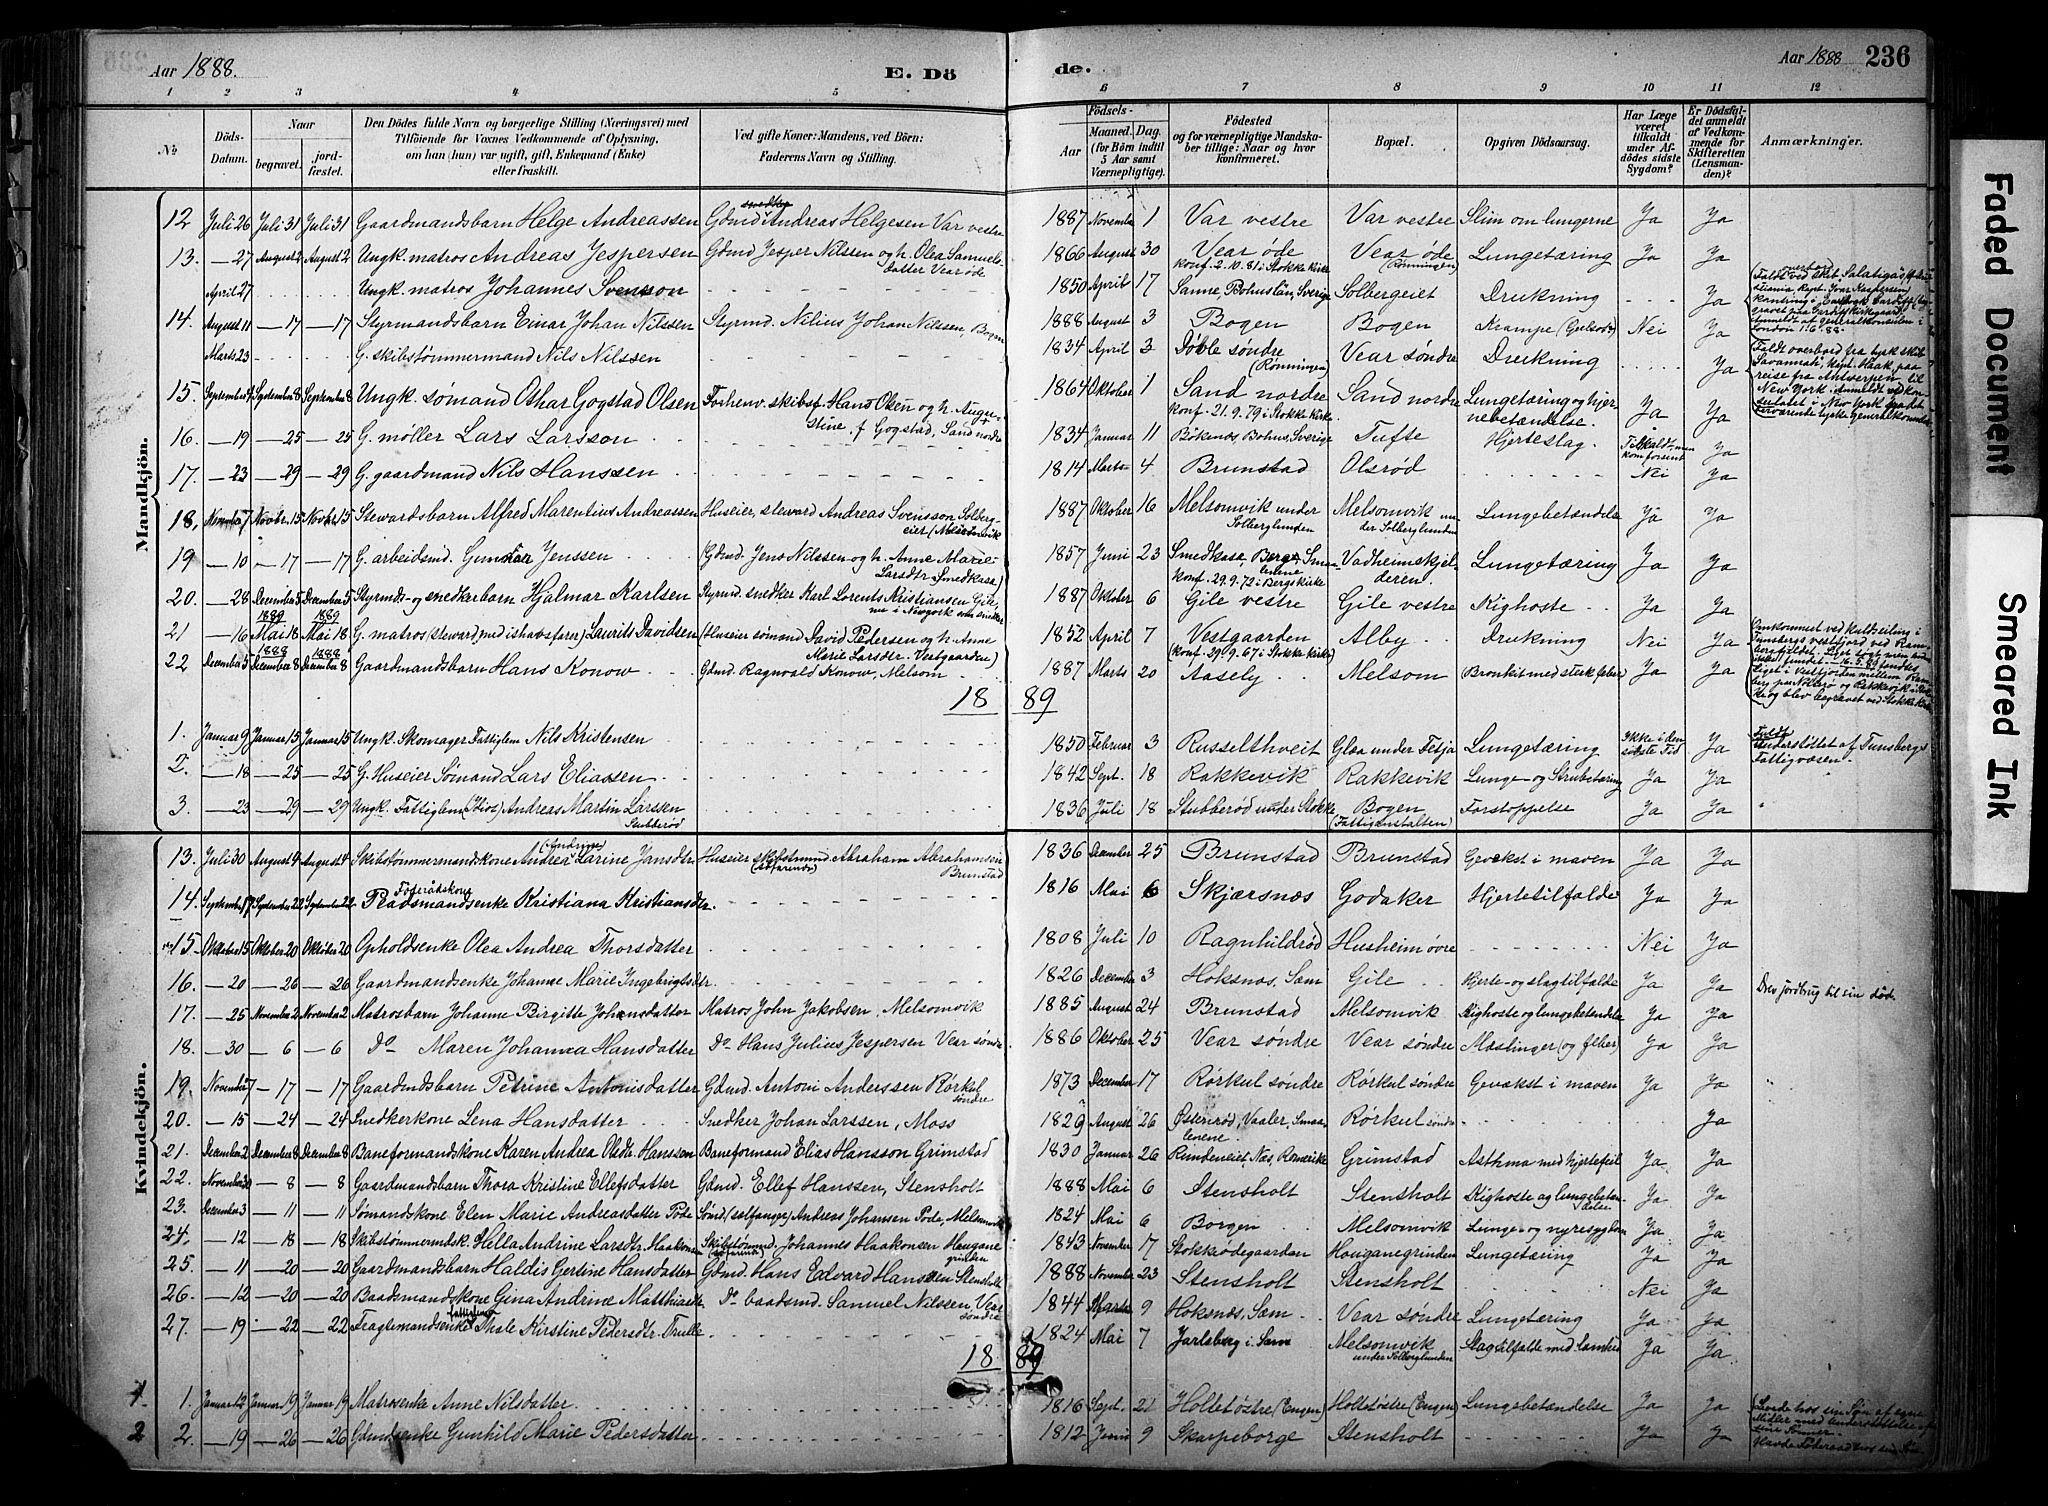 Aar 1888.
E. Dö
de.
Aar 1888
236
1 2 3 4 5 6 7 8 9 10 11 12
No
Döds-Datum.
Naar
begravet.
jord-fæstet.
Den Dödes fulde Navn og borgerlige Stilling (Næringsvei) med Tilföiende for Voxnes Vedkommende af Oplysning, om han (hun) var ugift, gift, Enkemand (Enke) eller fraskilt.
Ved gifte Koner: Mandens, ved Börn: Faderens Navn og Stilling.
Födsels-
Aar
Maaned. (for Börn indtil 5 Aar samt Værnepligtige).
Dag.
Födested og for værnepligtige Mandskaber tillige: Naar og hvor konfirmeret.
Bopæl.
Opgiven Dödsaarsag.
Har Læge været tilkaldt under Afdödes sidste Sygdom?
Er Dödsfaldet anmeldt af Vedkommende for Skifteretten (Lensmanden)?
Anmærkninger.
Mandkjön.
12 Juli 26 Juli 31 Juli 31 Gaardmandsbarn Helge Andreassen Gdmd snedker Andreas Helgesen Var vestre 1887 Novembr 1 Var vestre Var vestre Slim om lungerne Ja Ja
13. — 27 August 2 August 2 Ungk. matros Andreas Jespersen Gdmd Jesper Nilssen og h. Olea Samuelsdatter Vear øde 1866 August 30 Vear øde konf. 2.10.81 i Stokke kirke Vear øde (Rönningen) Lungetæring Ja Ja
April 27 Ungk. matros Johannes Svensson 1850 April 17 Sanne, Bohuslän, Sverige Solbergeiet Drukning Ja
14. August 11 — 17 — 17 Styrmandsbarn Einar Johan Nilssen Styrmd. Nilius Johan Nilssen, Bogen 1888 August 3 Bogen Bogen Krampe Nei Ja
Marts 23 G. skibstømmermand Nils Nilssen 1834 April 3 Döble søndre (Rönningen) Vear søndre Drukning Ja Faldt overbord fra tysk skib Savannah, kapt. Haak, paa reise fra Antwerpen til New York. Anmeldt ved konsulatet i New York
15. September 4 September 8 September 8 Ungk. sømand Othar Gogstad Olsen Forhenv. skibsf. Hans Olsen og h. Augustine f. Gogstad, Sand nordre 1864 Oktober 1 Sand nordre konf. 21.9.79 i Stokke kirke Sand nordre Lungetæring og hjernebetændelse. Ja Ja
16. — 19 — 25 — 25 G. møller Lars Larsson 1834 Januar 11 Bökenäs, Bohus, Sverige Tufte Hjerteslag. Tilkaldt, men kom forsent Ja
17. — 23 — 29 — 29 G. gaardmand Nils Hanssen 1814 Marts 4 Brunstad Olsrød Nei Ja
18. November 7 Novbr. 15 Novbr. 15 Stewardsbarn Alfred Marentius Andreassen Huseier, steward Andreas Svensson Solbergeier (Melsomvik 1887 Oktober 16 Melsomvik under Solberglunden Melsomvik under Solberglunden Lungebetændelse Ja Ja
19 — 10 — 17 — 17 G. arbeidsmd. Gunnar Jenssen (Gdmd. Jens Nilssen og h. Anne Marie Larsdtr Smedkasa) 1857 Juni 23 Smedkasa, Berg, Smaalenene konf. 29.9.72 i Bergs kirke Vadheimskjelderen. Lungetæring Ja Ja
20. — 28 December 5 December 5 Styrmds- og snedkerbarn Hjalmar Karlsen Styrmd. snedker Karl Lorents Kristiansen Gile, nu i Newyork som snedker 1887 Oktober 6 Gile vestre Gile vestre Kighoste Ja Ja
21 — 16 1889 Mai 18 1889 Mai 18 G. matros (steward, med ishavsfarer) Laurits Davidsen (Huseier sømand David Pedersen og h. Anne Marie Larsdtr. Vestgaarden) 1852 April 7 Vestgaarden (konf. 29.9.67 i Stokke kirke) Alby Drukning Nei Ja
22 December 5 1888 December 8 1888 December 8 Gaardmandsbarn Hans Konow Gdmd. Ragnvald Konow, Melsom 1887 Marts 20 Aasely Melsom (Bronkit med sterk feber) Ja Ja
18 89
1. Januar 9 Januar 15 Januar 15 Ungk. Skomager Fattiglem Nils Kristensen 1850 Februar 3 Russelthveit Glæa under Fetja Lungetæring Ikke i den sidste Tid Ja Fuldt Understöttet af Tunsbergs Fattigvæsen.
2. — 18 — 25 — 25 G. Huseier Sømand Lars Eliassen 1842 Sept. 18 Rakkevik Rakkevik Lunge- og Strubetæring Ja Ja
3. — 23 — 29 — 29 Ungk. Fattiglem (Idiot) Andreas Martin Larsen Stubberød 1836 Juli 18 Stubberød under Stokke Bogen (Fattiganstalten) Forstoppelse Ja Ja
Kvindekjön.
13. Juli 30 August 4 August 4 Skibstømmermandskone Andrea (Andrine) Larine Jansdtr Huseier skibstmmd Abraham Abrahamsen Brunstad 1836 December 25 Brunstad Brunstad Gevækst i maven Ja Ja
14. September 17 September 22 September 22 Føderådskone Pladsmandsenke Kristiana Kristiansdtr. 1816 Mai 6 Skjærsnæs Godaker Hjertetilfælde Ja Ja
15. Oktober 15 Oktober 20 Oktober 20 Opholdsenke Olea Andrea Thorsdatter 1808 Juli 10 Ragnhildrød Husheim øvre Nei Ja
16. — 20 — 26 — 26 Gaardmandsenke Johanne Marie Ingebrigtsdtr. 1826 December 3 Hoksnæs, Sæm Gile Hjerte- og slagtilfælde Ja Ja Drev jordbrug til sin död.
17. — 25 November 2 November 2 Matrosbarn Johanne Birgitte Johansdatter Matros John Jakobsen, Melsomvik 1885 August 24 Brunstad Melsomvik Kighoste og lungebetændelse Ja Ja
18. — 30 — 6 — 6 Do Maren Johanna Hansdatter Do Hans Julius Jespersen Vear søndre 1886 Oktober 25 Vear søndre Vear søndre Mæslinger (og feber) Ja Ja
19. November 7 — 17 — 17 Gaardmdsbarn Petrine Antonisdatter Gdmd. Antoni Anderssen Rörkul søndre 1873 December 17 Rörkul søndre Rörkul søndre Gevækst i maven Ja Ja
20. — 15 — 24 — 24 Snedkerkone Lena Hansdatter Snedker Johan Larssen, Moss 1829 August 26 Østererød, Vaaler, Smaalenene. Rörkul søndre Ja
21. December 2 December 8 December 8 Baneformandskone Karen Andrea Olsdtr Hanssen Baneformand Elias Hansson Grimstad 1830 Januar 26 Rundeneiet, Næs, Romerike Grimstad Asthma med hjertefeil Ja Ja
22. November — 8 — 8 Gaardmandsbarn Thora Kristine Ellefsdatter Gdmd. Ellef Hanssen, Stensholt 1888 Mai 6 Stensholt Stensholt Kighoste og lungebetændelse Ja Ja
23. December 3 — 11 — 11 Sømandskone Elen Marie Andreasdatter Pode Sömd (sælfanger) Andreas Johansen Pode, Melsomvik 1824 Mai 6 Borgen Melsomvik Lunge- og nyresygdom Ja Ja
24. — 12 — 18 — 18 Skibstømmermdsk. Hella Andrine Larsdtr. Haakonsen Skibstømmd. Johannes Haakonsen Hougane grinden 1843 November 17 Stokkødegaarden Houganegrinden Lungetæring Ja Ja
25. — 11 — 20 — 20 Gaardmandsbarn Haldis Gertine Hansdatter Gdmd. Hans Edvard Hanssen Stensholt 1888 November 23 Stensholt Stensholt Nei Ja
26. — 12 — 20 — 20 Baadsmandskone Gina Andrine Matthiasdtr Do baadsmd. Samuel Nilssen, Vear søndre 1844 Marts 9 Hoksnæs, Sæm Vear søndre Lungetæring Ja Ja
27. — 19 — 22 — 22 Fragtemandsenke fattiglem Thale Kirstine Pedersdtr. Trulle 1824 Mai 7 Jarlsberg i Sæm Melsomvik under Solberglunden Slagtilfælde med lamhed Ja Ja
18 89
1 1. Januar 12 Januar 19 Januar 19 Matrosenke Anne Nilsdatter 1816 Sept. 21 Holtetøstre (Engen) Holtetøstre (Engen) Lungebetændelse Ja Ja
2 2. — 19 — 26 — 26 Gdmdsenke Gunhild Marie Pedersdatter 1812 Juni 9 Skarpeborge Stensholt Ja Ja
Faded Document
Smeared Ink